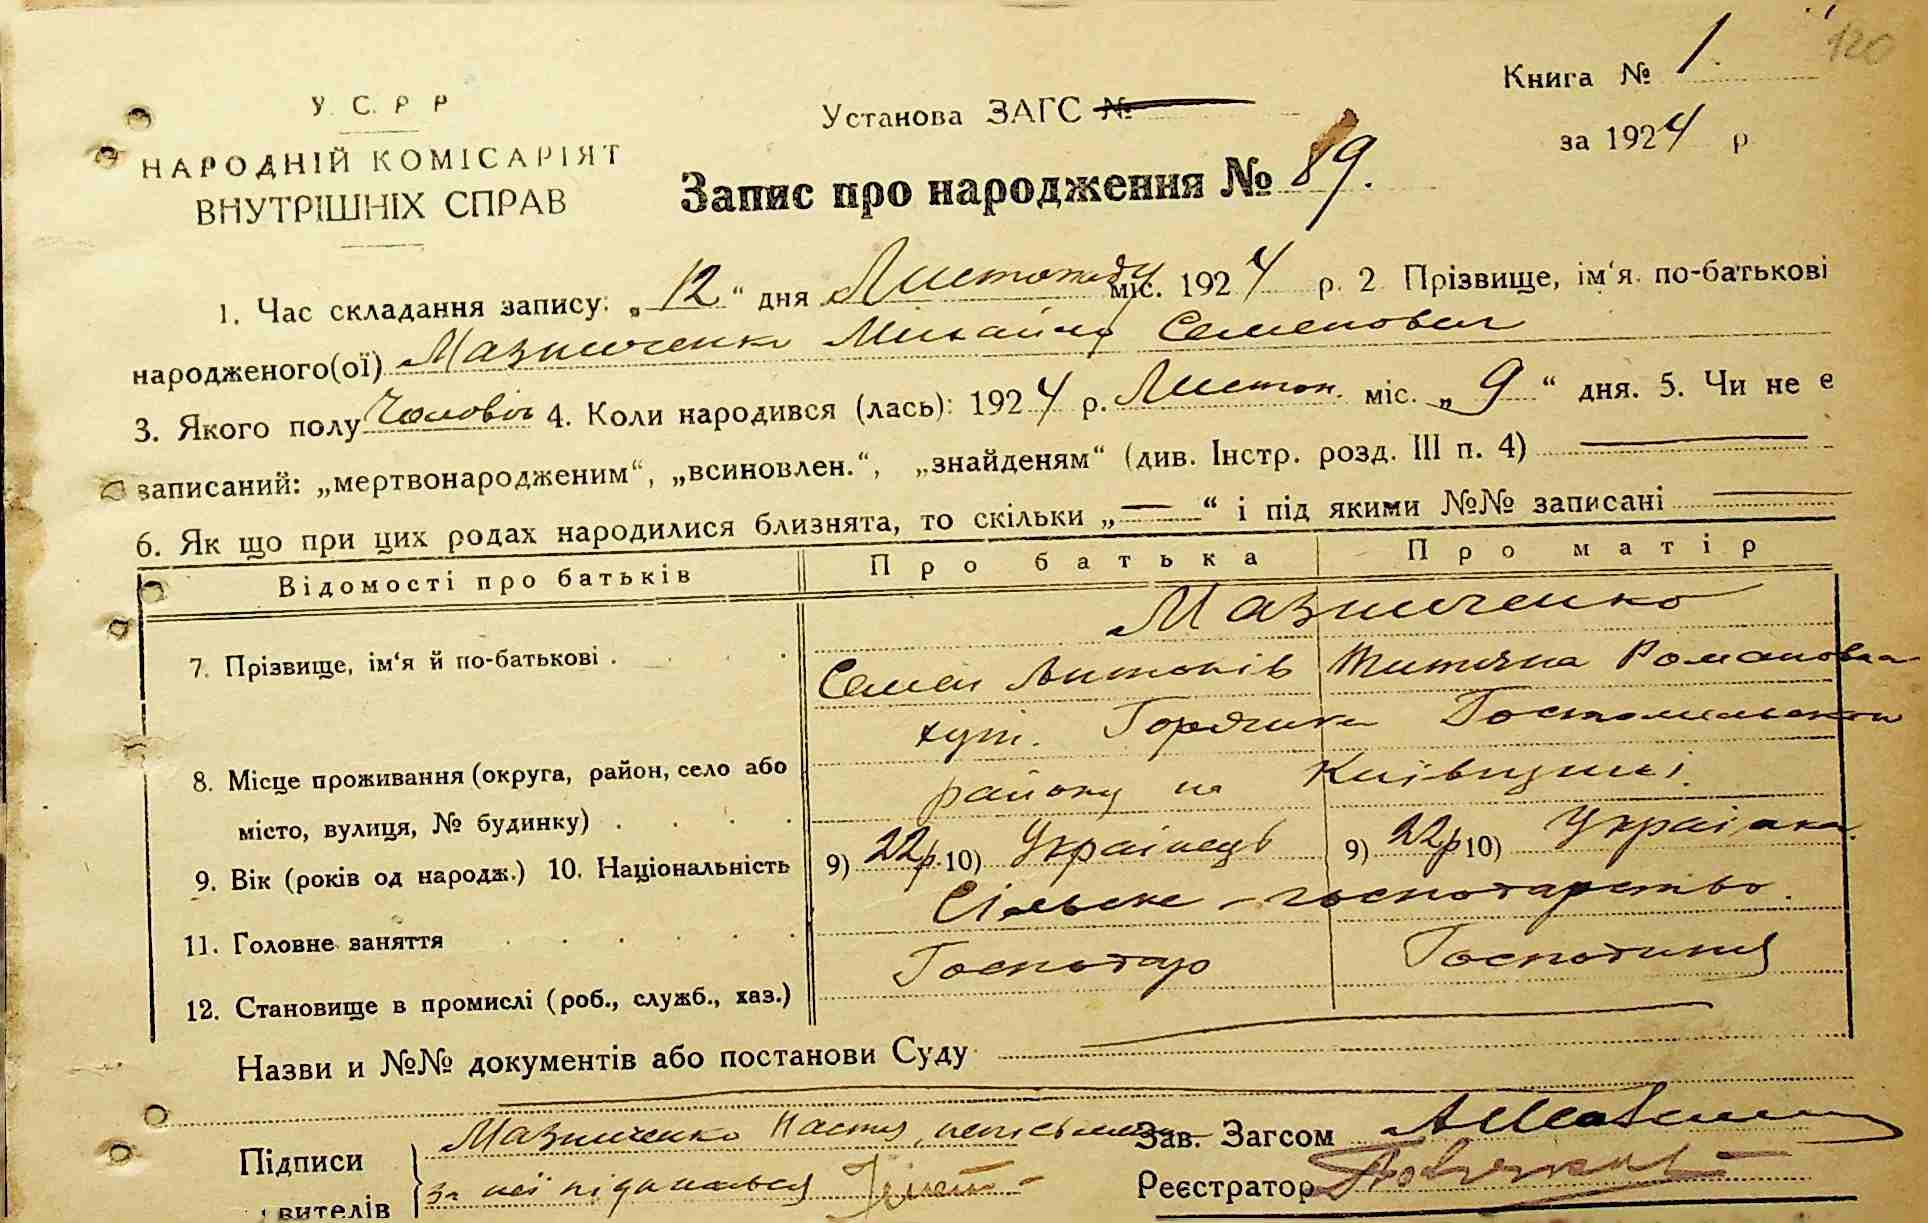 120
Книга № 1.
У. С. Р Р
Установа ЗАГС №
за 1924 р
НАРОДНІЙ КОМІСАРІЯТ
ВНУТРІШНІХ СПРАВ
Запис про народження № 89.
1. Час складання запису: „12“ дня Листопаду міс. 1924 р. 2 Прізвище, ім‘я. по-батькові
народженого(ої) Мазниченко Михайло Семенович
3. Якого полу Чоловіч 4. Коли народився (лась): 1924 р. Листоп. міс. „9“ дня. 5. Чи не є
записаний: „мертвонародженим“, „всиновлен.“, „знайденям“ (див. Інстр. розд. III п. 4)
6. Як що при цих родах народилися близнята, то скільки „—“ і під якими №№ записані
Відомості про батьків Про батька Про матір
Мазниченко
7. Прізвище, ім‘я й по-батькові . Семен Антонів Романовна
хут. Горянка Гостомельського
8. Місце проживання (округа, район, село або
району на Київщині.
місто, вулиця, № будинку)
9. Вік (років од народж.) 10. Національність 9) 22р. 10) Українець 9) 22р 10) Українка.
11. Головне заняття Сільське-господарство.
12. Становище в промислі (роб., служб., хаз.) Господар Господиня
Назви и №№ документів або постанови Суду
Підписи Мазниченко Настя, Зав. Загсом
за неї підписався Реєстратор
вителів